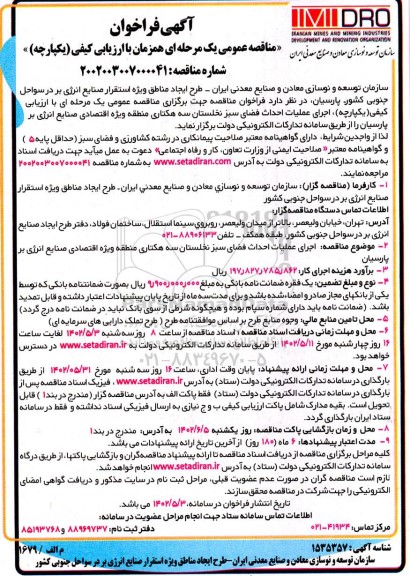 IMIDRO
IRANIAN MINES AND MINING INDUSTRIES
DEVELOPMENT AND RENOVATION ORGANIZATION
سازمان توسعه و نوسازی معادن و صنایع معدنی ایران
آگهی فراخوان
«مناقصه عمومی یک مرحله ای همزمان با ارزیابی کیفی (یکپارچه)»
شماره مناقصه: ۲۰۰۲۰۰۳۰۰۷۰۰۰۰۴۱
سازمان توسعه و نوسازی معادن و صنایع معدنی ایران - طرح ایجاد مناطق ویژه استقرار صنایع انرژی بر در سواحل
جنوبی کشور، پارسیان، در نظر دارد فراخوان مناقصه جهت برگزاری مناقصه عمومی یک مرحله ای با ارزیابی
کیفی(یکپارچه)، اجرای عملیات احداث فضای سبز نخلستان سه هکتاری منطقه ویژه اقتصادی صنایع انرژی بر
پارسیان را از طریق سامانه تدارکات الکترونیکی دولت برگزار نماید.
لذا از واجدین شرایط، دارای گواهینامه معتبر صلاحیت پیمانکاری در رشته کشاورزی و فضای سبز (حداقل پایه ۵)
و گواهینامه معتبر« صلاحیت ایمنی از وزارت تعاون، کار و رفاه اجتماعی» دعوت به عمل میآید جهت دریافت اسناد
به سامانه تدارکات الکترونیکی دولت به آدرس www.setadiran.com به شماره مناقصه ۲۰۰۲۰۰۳۰۰۷۰۰۰۰۴۱
مراجعه نمایند.
۱- کارفرما (مناقصه گزار): سازمان توسعه و نوسازی معادن و صنایع معدنی ایران- طرح ایجاد مناطق ویژه استقرار
صنایع انرژی بر در سواحل جنوبی کشور
اطلاعات تماس دستگاه مناقصه گزار:
آدرس: تهران، خیابان ولیعصر، بالاتر از میدان ولیعصر، روبروی سینما استقلال، ساختمان فولاد، دفتر طرح ایجاد صنایع
انرژی بر در سواحل جنوبی کشور، طبقه همکف - تلفن ۸۸۹۰۶۱۳۳-۰۲۱
۲- موضوع مناقصه: اجرای عملیات احداث فضای سبز نخلستان سه هکتاری منطقه ویژه اقتصادی صنایع انرژی بر
پارسیان
۳- برآورد هزینه اجرای کار: ۱۹۷٫۸۲۷٫۷۸۵٫۸۶۲ ریال
۴- نوع و مبلغ تضمین: یک فقره ضمانت نامه بانکی به مبلغ ۹٫۹۰۰٫۰۰۰٫۰۰۰ ریال بصورت ضمانتنامه بانکی که توسط
یکی از بانکهای مجاز صادر و امضا شده باشد و برای مدت سه ماه از تاریخ پایان پیشنهادات اعتبار داشته و قابل تمدید
باشد. (ضمانت نامه باید دارای شماره سپام بوده و هیچگونه شرطی از سوی بانک نباید در ضمانت نامه درج گردد)
۵- محل تامین منابع مالی: وجوه منابع طرح بر اساس موافقتنامه طرح ( طرح تملک دارایی های سرمایه ای)
۶- محل و مهلت زمانی دریافت اسناد مناقصه : اسناد مناقصه از ساعت ۸ روز سه شنبه مورخ ۱۴۰۲/۵/۳ لغایت ساعت
۱۶ روز چهارشنبه مورخ ۱۴۰۲/۵/۱۱ از طریق سامانه به آدرس www.setadiran.ir در دسترس
خواهد بود.
۷- محل و مهلت زمانی ارائه پیشنهاد: پایان وقت اداری، ساعت ۱۶ روز سه شنبه مورخ ۱۴۰۲/۰۵/۳۱ از طریق
بارگذاری در سامانه تدارکات الکترونیکی دولت (ستاد) به آدرس www.setadiran.ir ، فیزیک اسناد مناقصه پس از
بارگذاری در سامانه تدارکات الکترونیکی دولت (ستاد) فقط پاکت الف به آدرس مناقصه گزار (مندرج در بند۱) قابل
تحویل است. بقیه مدارک شامل پاکت ارزیابی کیفی ب و ج نیازی به ارسال فیزیکی اسناد نداشته و فقط در سامانه
ستاد ایران بارگذاری گردد.
۸- محل و زمان بازگشایی پاکت مناقصه: روز یکشنبه ۱۴۰۲/۶/۵ به آدرس: مندرج در بند۱
۹- مدت اعتبار پیشنهادها: ۶ ماه (۱۸۰ روز) از آخرین تاریخ ارائه پیشنهادات می باشد.
کلیه مراحل برگزاری مناقصه از دریافت اسناد مناقصه تا ارائه پیشنهاد مناقصه گران و بازگشایی پاکتها، از طریق درگاه
سامانه تدارکات الکترونیکی دولت (ستاد) به آدرس www.setadiran.ir انجام خواهد شد.
لازم است مناقصه گران در صورت عدم عضویت قبلی، مراحل ثبت نام در سایت مذکور و دریافت گواهی امضای
الکترونیکی را جهت شرکت در مناقصه محقق سازند.
تاریخ انتشار فراخوان در سامانه، ۱۴۰۲/۵/۳ می باشد.
اطلاعات تماس سامانه ستاد جهت انجام مراحل عضویت در سامانه:
مرکز تماس: ۴۱۹۳۴-۰۲۱ دفتر ثبت نام: ۸۸۹۶۹۷۳۷ و ۸۵۱۹۳۷۶۸
شناسه آگهی: ۱۵۳۵۳۵۷ م الف / ۱۶۷۹
سازمان توسعه و نوسازی معادن و صنایع معدنی ایران -طرح ایجاد مناطق ویژه استقرار صنایع انرژی بر در سواحل جنوبی کشور